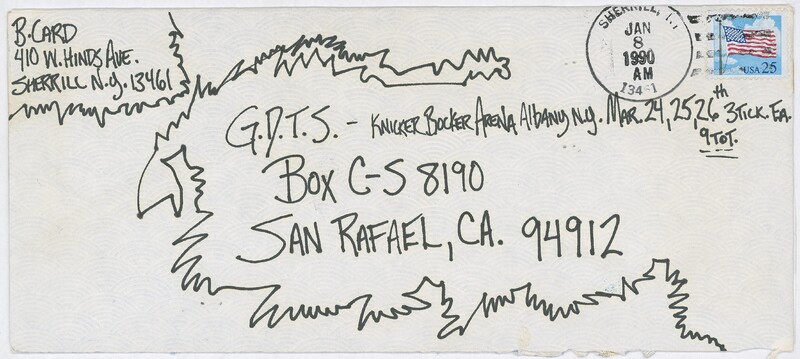 B. CARD
410 W. HINDS AVE.
SHERRILL N.Y. 13461
SHERRILL, N.Y.
JAN
8
1990
AM
13461
USA 25
G.D.T.S. - KNICKER BOCKER ARENA, Albany N.Y. MAR. 24, 25, 26th 3 TICK. EA.
9 TOT.
Box C-S 8190
SAN RAFAEL, CA. 94912